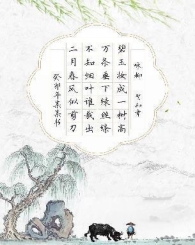 咏柳 贺知章
碧玉妆成一树高
万条垂下绿丝绦
不知细叶谁裁出
二月春风似剪刀
癸卯年某某书